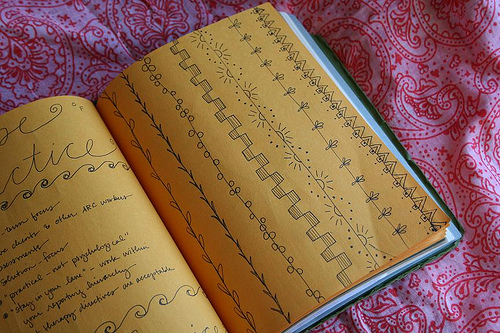 ctice
-term focus
clients & other ARC workers
assessments
solution focus
• "practical - not psychological"
• "stay in your lane" - work within
your reporting hierarchy
therapy directives are acceptable